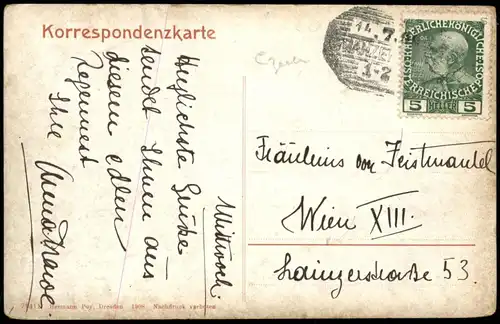 Korrespondenzkarte
Mittwoch.
Herzlichste Grüße
sendet Ihnen aus
diesem edlen
Ihre
14. 7.
1-2
KAISERLICHE KÖNIGLICHE
ÖSTERREICHISCHE POST
5 HELLER 5
Fräuleins von Feistmantel
Wien XIII.
Lainzerstraße 53.
Hermann Poy, Dresden 1908 Nachdruck verboten